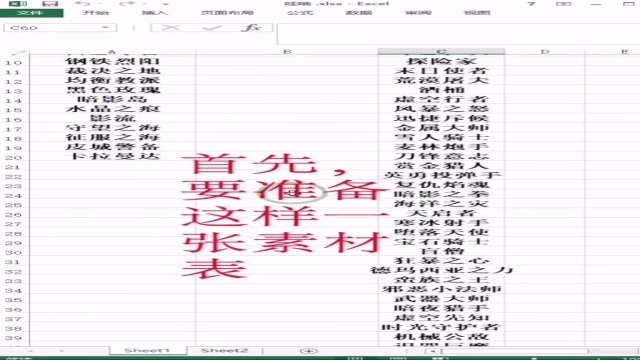 .xlsx - Excel
文件 开始 插入 页面布局 公式 数据 审阅 视图
C60
A B C D E
10 钢铁烈阳 探险家
11 裁决之地 末日使者
12 均衡教派 荒漠屠夫
13 黑色玫瑰 酒桶
14 暗影岛 虚空行者
15 水晶之痕 风暴之怒
16 影流 迅捷斥候
17 守望之海 金属大师
18 征服之海 雪人骑士
19 皮城警备 麦林炮手
20 卡拉曼达 刀锋意志
21 赏金猎人
22 英勇投弹手
23 复仇焰魂
24 暗影之拳
25 海洋之灾
26 天启者
27 寒冰射手
28 堕落天使
29 宝石骑士
30 盲僧
31 狂暴之心
32 德玛西亚之力
33 蛮族之王
34 邪恶小法师
35 武器大师
36 暗夜猎手
37 虚空先知
38 时光守护者
39 机械公敌
首先，
要准备
这样一
张素材
表
Sheet1 Sheet2